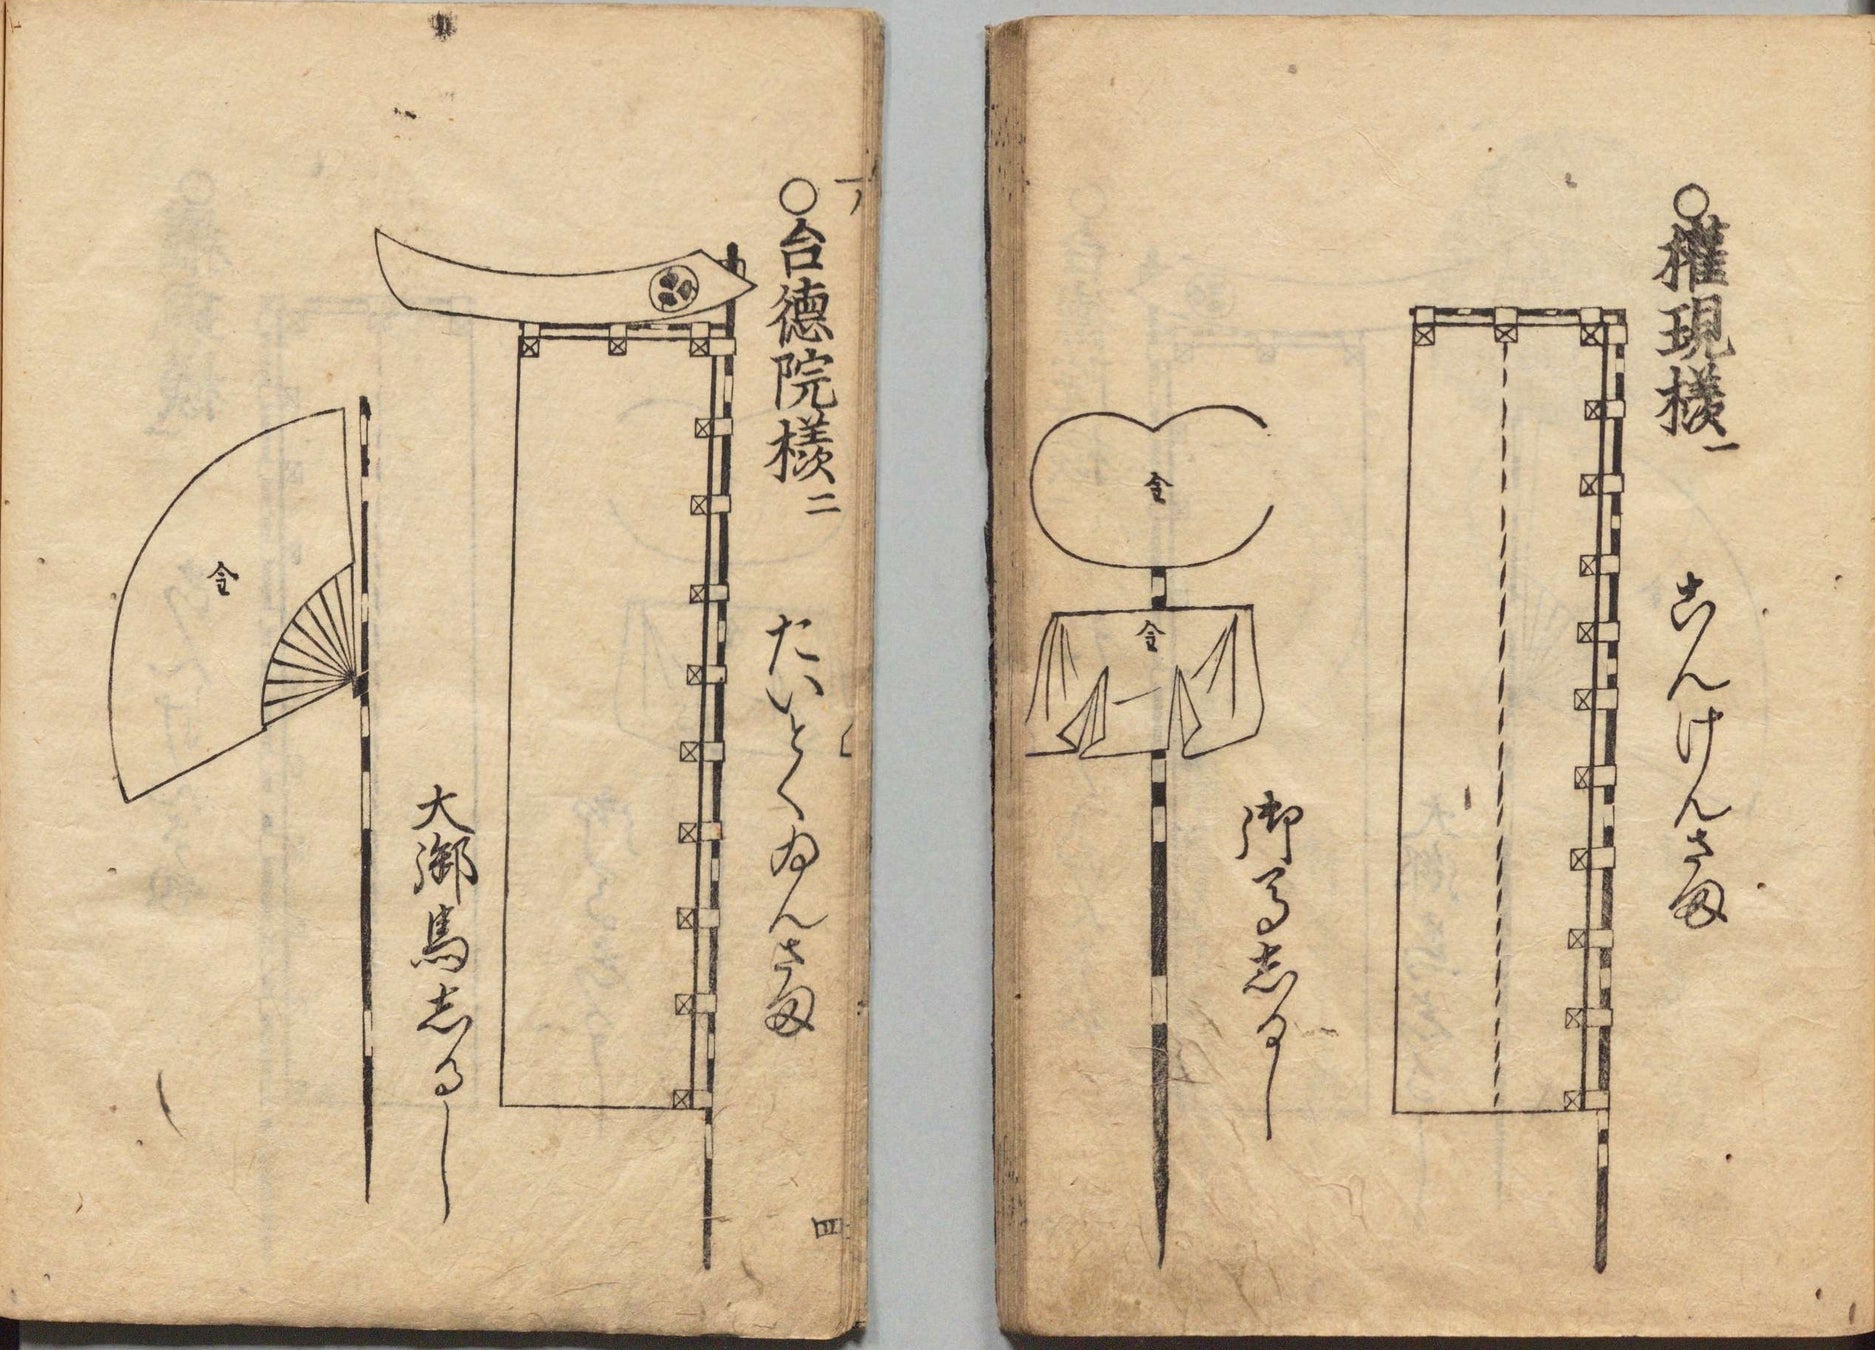 ○権現様一
ごんけんさま
御馬志るし
金
金
○台徳院様二
たいとくゐんさま
大御馬志るし
金
四